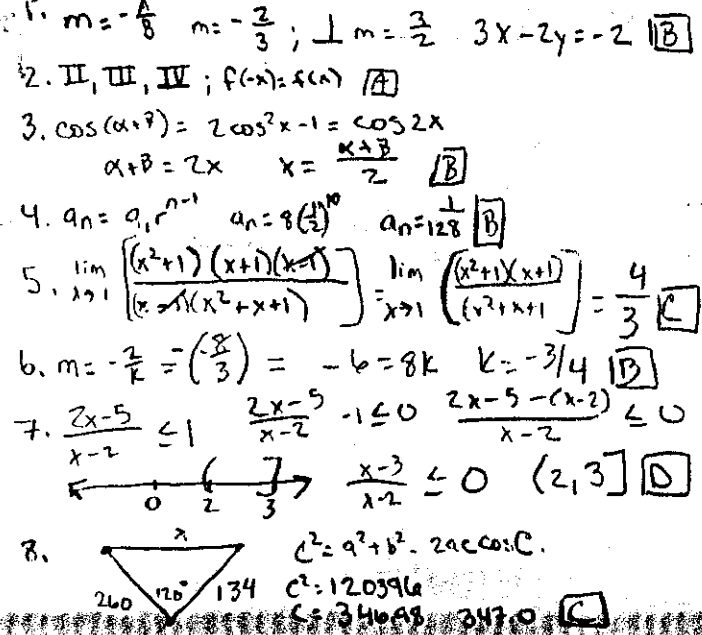 1. m = -A/B m = -2/3 ; ⊥ m = 3/2 3x-2y = -2 B
2. II, III, IV ; f(-x) = f(x) A
3. cos(α+β) = 2cos²x-1 = cos2x
α+β = 2x x = (α+β)/2 B
4. aₙ = a₁rⁿ⁻¹ aₙ = 8(1/2)¹⁰ aₙ = 1/128 B
5. lim x→1 [(x²+1)(x+1)(x-1)/(x-1)(x²+x+1)] = lim x→1 [(x²+1)(x+1)/(x²+x+1] = 4/3 C
6. m = -2/k = -(-8/3) = -6 = 8k k = -3/4 B
7. (2x-5)/(x-2) ≤ 1 (2x-5)/(x-2) -1 ≤ 0 (2x-5-(x-2))/(x-2) ≤ 0
(x-3)/(x-2) ≤ 0 (2,3] D
0 2 3
8. x c² = a²+b²- 2accosC.
260 120° 134 c² = 120396
c = 346.98 347.0 C